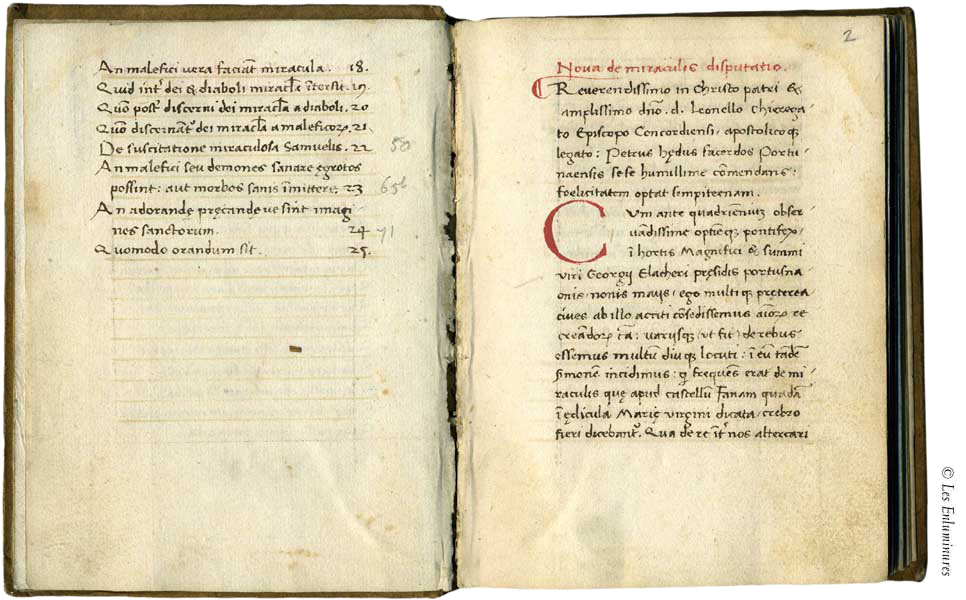 An malefici vera faciāt miracula. 18.
Quid int' dei & diaboli miracl̄a ītersit. 19.
Quō post' discerni dei miracl̄a a diaboli. 20
Quō discernāt' dei miracl̄a a maleficoꝝ. 21.
De suscitatione miraculosa Samuelis. 22 50
An malefici seu demones sanare ęgrotos
possint: aut morbos sanis īmittere. 23 65b
An adorandę pręcandę ve sint imagi
nes sanctorum. 24 71
Quomodo orandum sit. 25.
2
Nova de miraculis disputatio.
Reverendissimo in Christo patri &
amplissimo dno. d. Leonello Chierega-
to Episcopo Concordiensi, apostolicoqꝫ
legato: Petrus hędus sacerdos Portu-
naensis sese humillime cōmendans:
foelicitatem optat sempiternam.
Cum ante quadrienniuꝫ obser-
vādissime optieqꝫ pontifex,
ī hortis Magnifici & summi
viri Georgii Elacheri pręsidis portusna-
onis, nonis maiis, ego multi qꝫ pręterea
cives ab illo acciti cōsedissemus aīoꝝ re
creādoꝝ cā: variisqꝫ, ut fit, de rebus
essemus multū diuqꝫ locuti: ī eū tādē
simonē incidimus: q̄ frequēs erat de mi-
raculis quę apud castellū Fanam quadā
ī ędicula Marię virgini dicata, crebro
fieri dicebant'. Qua de re īt' nos altercari
© Les Enluminures